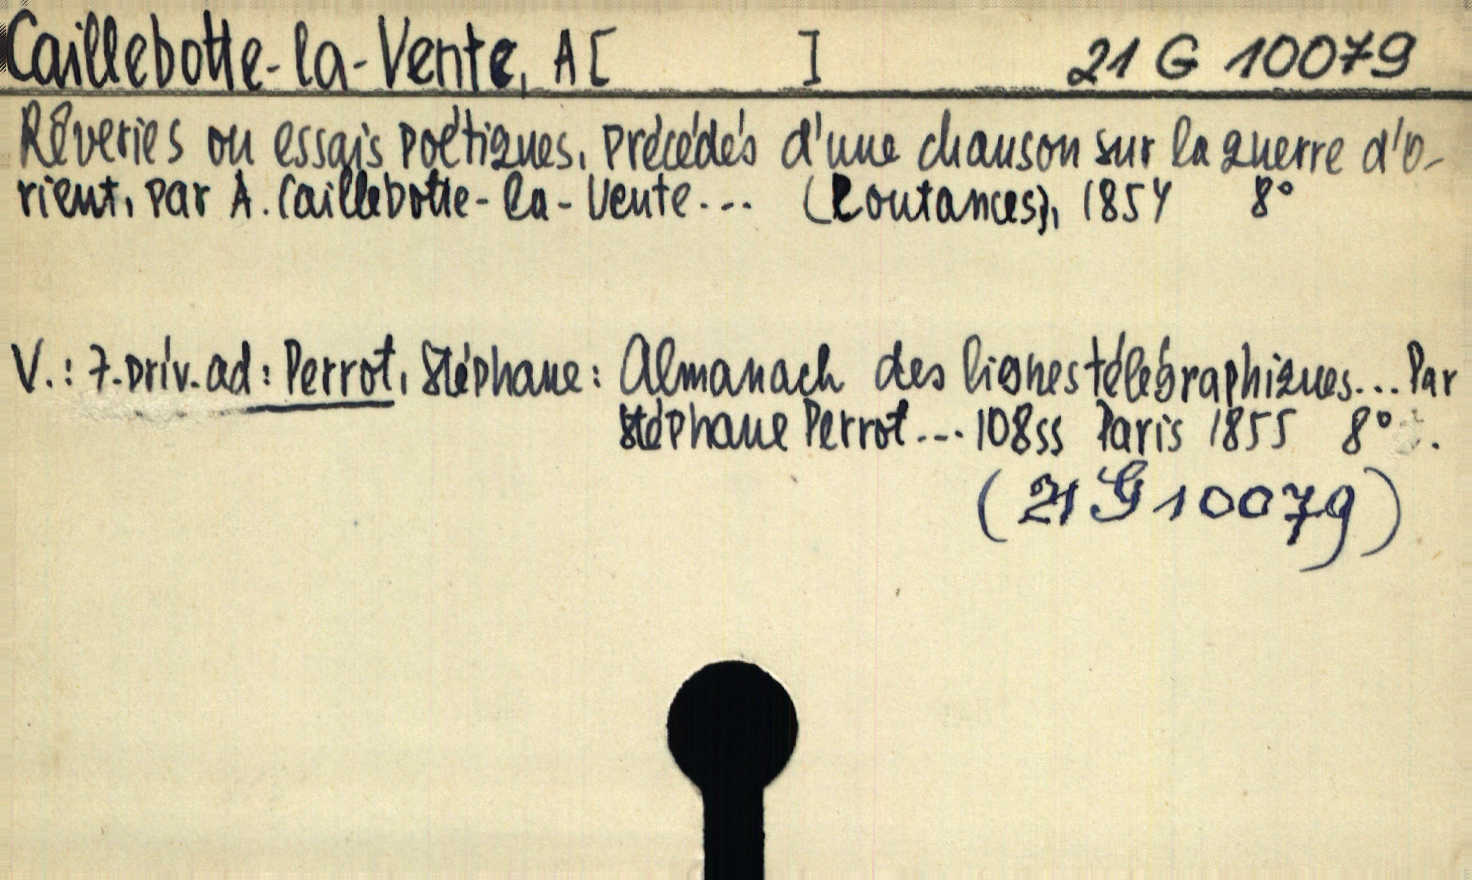 Caillebotte-la-Vente, A [ ] 21 G 10079
Rêveries ou essais poétiques, précédés d'une chanson sur la guerre d'o-
rient, par A. Caillebotte-la-Vente... (Coutances), 1854 8°
V.: 7. priv. ad: Perrot, Stéphane: Almanach des lignes télégraphiques... Par
Stéphane Perrot... 108ss Paris 1855 8°.
(21 G 10079)